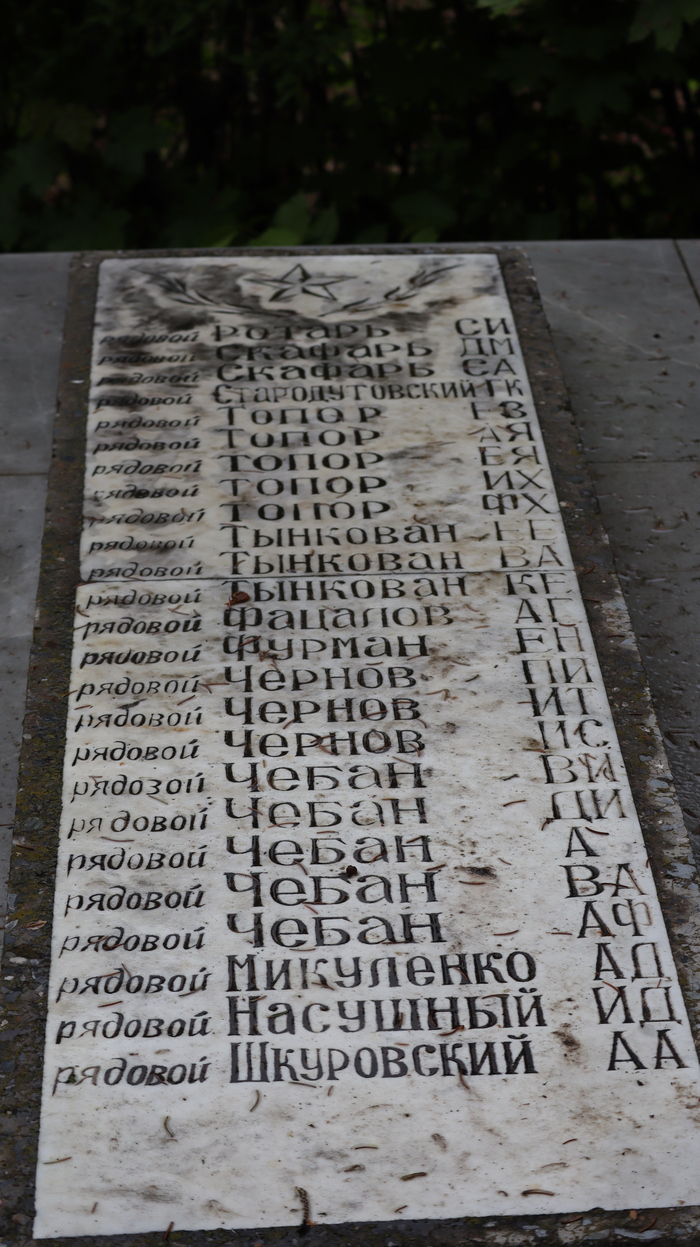 рядовой Ротарь СИ
рядовой Скафарь ДМ
рядовой Скафарь ЄА
рядовой Стародутовский ГК
рядовой Топор ГВ
рядовой Топор АЯ
рядовой Топор ЕЯ
рядовой Топор ИХ
рядовой Топор ФХ
рядовой Тынкован ЕЕ
рядовой Тынкован ВА
рядовой Тынкован КЕ
рядовой Фацалов АГ
рядовой Фурман ЕН
рядовой Чернов ПИ
рядовой Чернов ИТ
рядовой Чернов ИС
рядовой Чебан ВИ
рядовой Чебан ДИ
рядовой Чебан А
рядовой Чебан ВА
рядовой Чебан АФ
рядовой Микуленко АД
рядовой Насушный ИД
рядовой Шкуровский АА